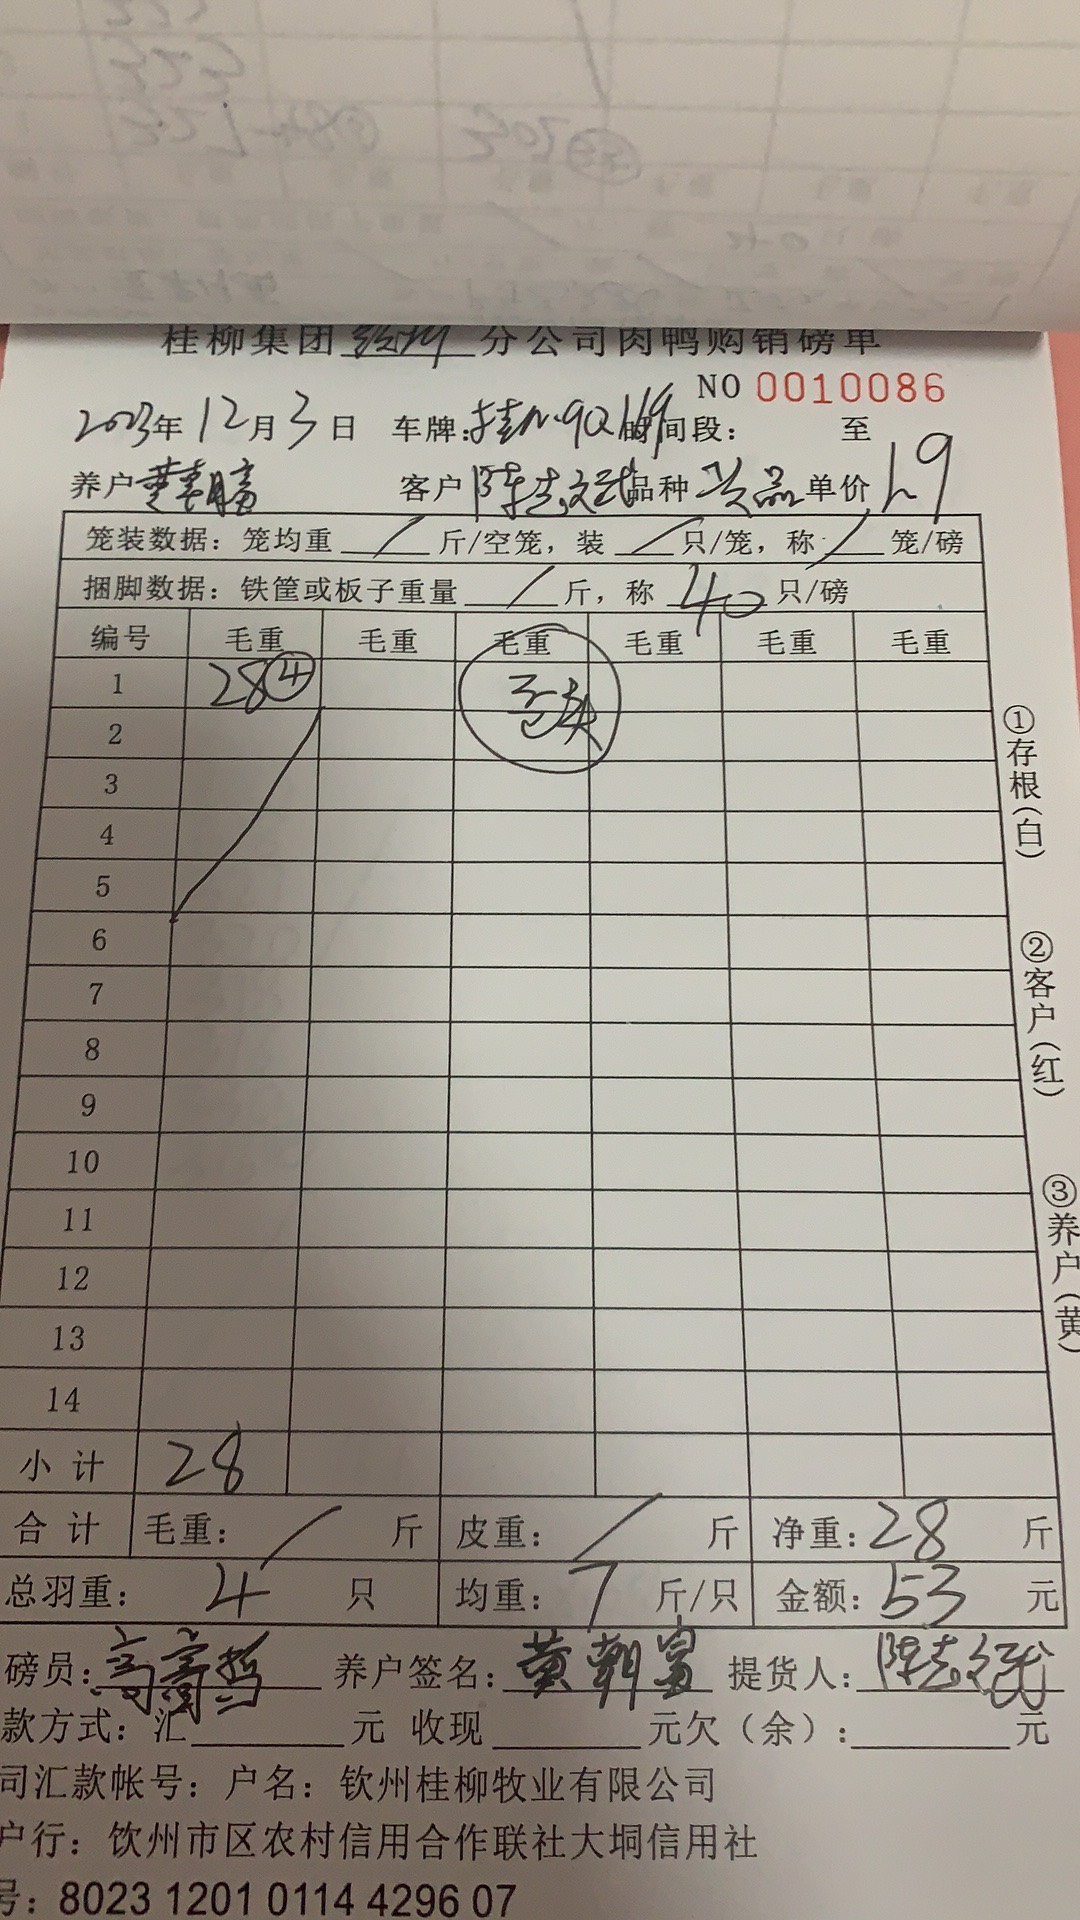 桂柳集团钦州分公司肉鸭购销磅单
NO 0010086
2023年12月3日 车牌:桂N·9Q169 时间段: 至
养户黄朝富 客户陈志文 品种 次品 单价1.9
笼装数据: 笼均重/斤/空笼, 装/只/笼, 称/笼/磅
捆脚数据: 铁筐或板子重量/斤, 称40只/磅
编号 毛重 毛重 毛重 毛重 毛重 毛重
1 28④
2
3
4
5
6
7
8
9
10
11
12
13
14
小计 28
合计 毛重: / 斤 皮重: / 斤 净重:28 斤
总羽重: 4 只 均重: 7 斤/只 金额:53 元
磅员: 养户签名:黄朝富 提货人:陈志文
款方式: 汇 元 收现 元欠(余): 元
司汇款帐号: 户名: 钦州桂柳牧业有限公司
户行: 钦州市区农村信用合作联社大垌信用社
号: 8023 1201 0114 4296 07
①存根(白)
②客户(红)
③养户(黄)